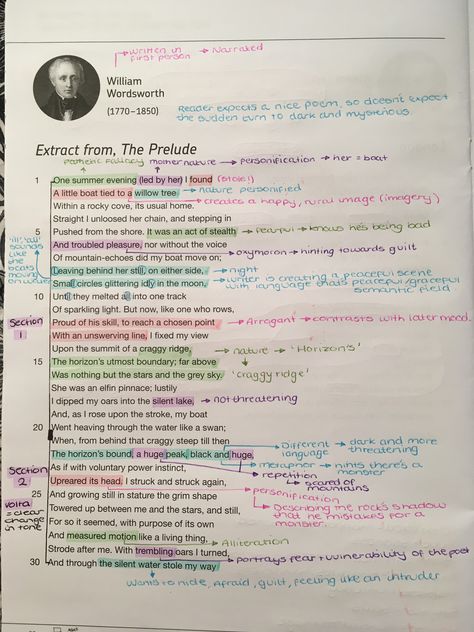 written in first person → Narrated
William
Wordsworth
(1770–1850)
Reader expects a nice poem, so doesn't expect
the sudden turn to dark and mysterious.
Extract from, The Prelude
Pathetic fallacy mother nature → personification → her = boat
1 One summer evening (led by her) I found (stole!)
A little boat tied to a willow tree → nature personified
Within a rocky cove, its usual home. → creates a happy, rural image (imagery)
Straight I unloosed her chain, and stepping in
5 Pushed from the shore. It was an act of stealth → fearful - knows he's being bad
And troubled pleasure, nor without the voice
Of mountain-echoes did my boat move on; → oxymoron → hinting towards guilt
'ill', 'all' sounds like the boats moving on water
Leaving behind her still, on either side, → night
Small circles glittering idly in the moon, → writer is creating a peaceful scene with language that's peaceful/graceful semantic field
10 Until they melted all into one track
Of sparkling light. But now, like one who rows,
Section 1
Proud of his skill, to reach a chosen point → Arrogant → contrasts with later mood.
With an unswerving line, I fixed my view
Upon the summit of a craggy ridge, → nature → 'Horizon's'
15 The horizon's utmost boundary; far above
Was nothing but the stars and the grey sky. 'craggy ridge'
She was an elfin pinnace; lustily
I dipped my oars into the silent lake, → not threatening
And, as I rose upon the stroke, my boat
20 Went heaving through the water like a swan;
When, from behind that craggy steep till then
The horizon's bound, a huge peak, black and huge, Different language → dark and more threatening
Section 2
As if with voluntary power instinct, → metaphor → hints there's a monster
Upreared its head. I struck and struck again, repetition → scared of mountains
25 And growing still in stature the grim shape → personification
volta = clear change in tone
Towered up between me and the stars, and still, → Describing the rock's shadow that he mistakes for a monster.
For so it seemed, with purpose of its own
And measured motion like a living thing, → Alliteration
Strode after me. With trembling oars I turned, → portrays fear + vulnerability of the poet
30 And through the silent water stole my way
wants to hide, afraid, guilt, feeling like an intruder